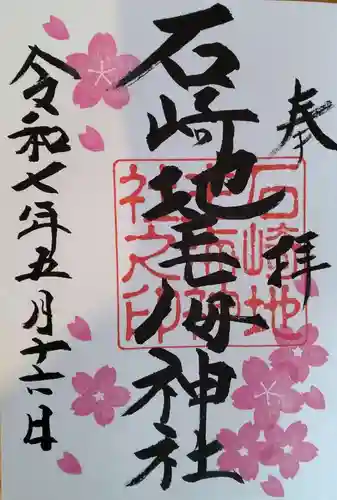 奉拝
石崎地主海神社
令和七年五月十六日
石崎地
主海神
社之印